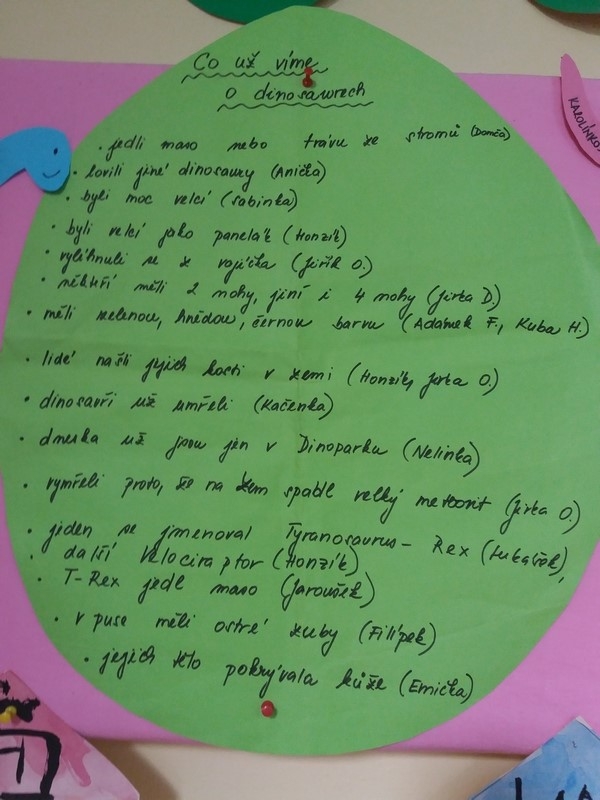 Co už víme
o dinosaurech
• jedli maso nebo trávu ze stromů (Domča)
• lovili jiné dinosaury (Anička)
• byli moc velcí (Sabinka)
• byli velcí jako panelák (Honzík)
• vylíhnuli se z vajíčka (Jiřík O.)
• někteří měli 2 nohy, jiní i 4 nohy (Jirka D.)
• měli zelenou, hnědou, černou barvu (Adámek F., Kuba H.)
• lidé našli jejich kosti v zemi (Honzík, Jirka O.)
• dinosauři už umřeli (Kačenka)
• dneska už jsou jen v Dinoparku (Nelinka)
• vymřeli proto, že na zem spadl velký meteorit (Jirka O.)
• jeden se jmenoval Tyranosaurus - Rex (Lukášek),
• další Velociraptor (Honzík)
• T-Rex jedl maso (Jaroušek)
• v puse měli ostré zuby (Filípek)
• jejich tělo pokrývala kůže (Emička)